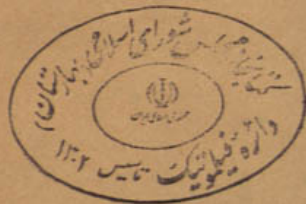 کتابخانه مجلس شورای اسلامی (بهارستان)
جمهوری اسلامی ایران
دائره فیلاتلیک تاسیس ۱۳۰۲